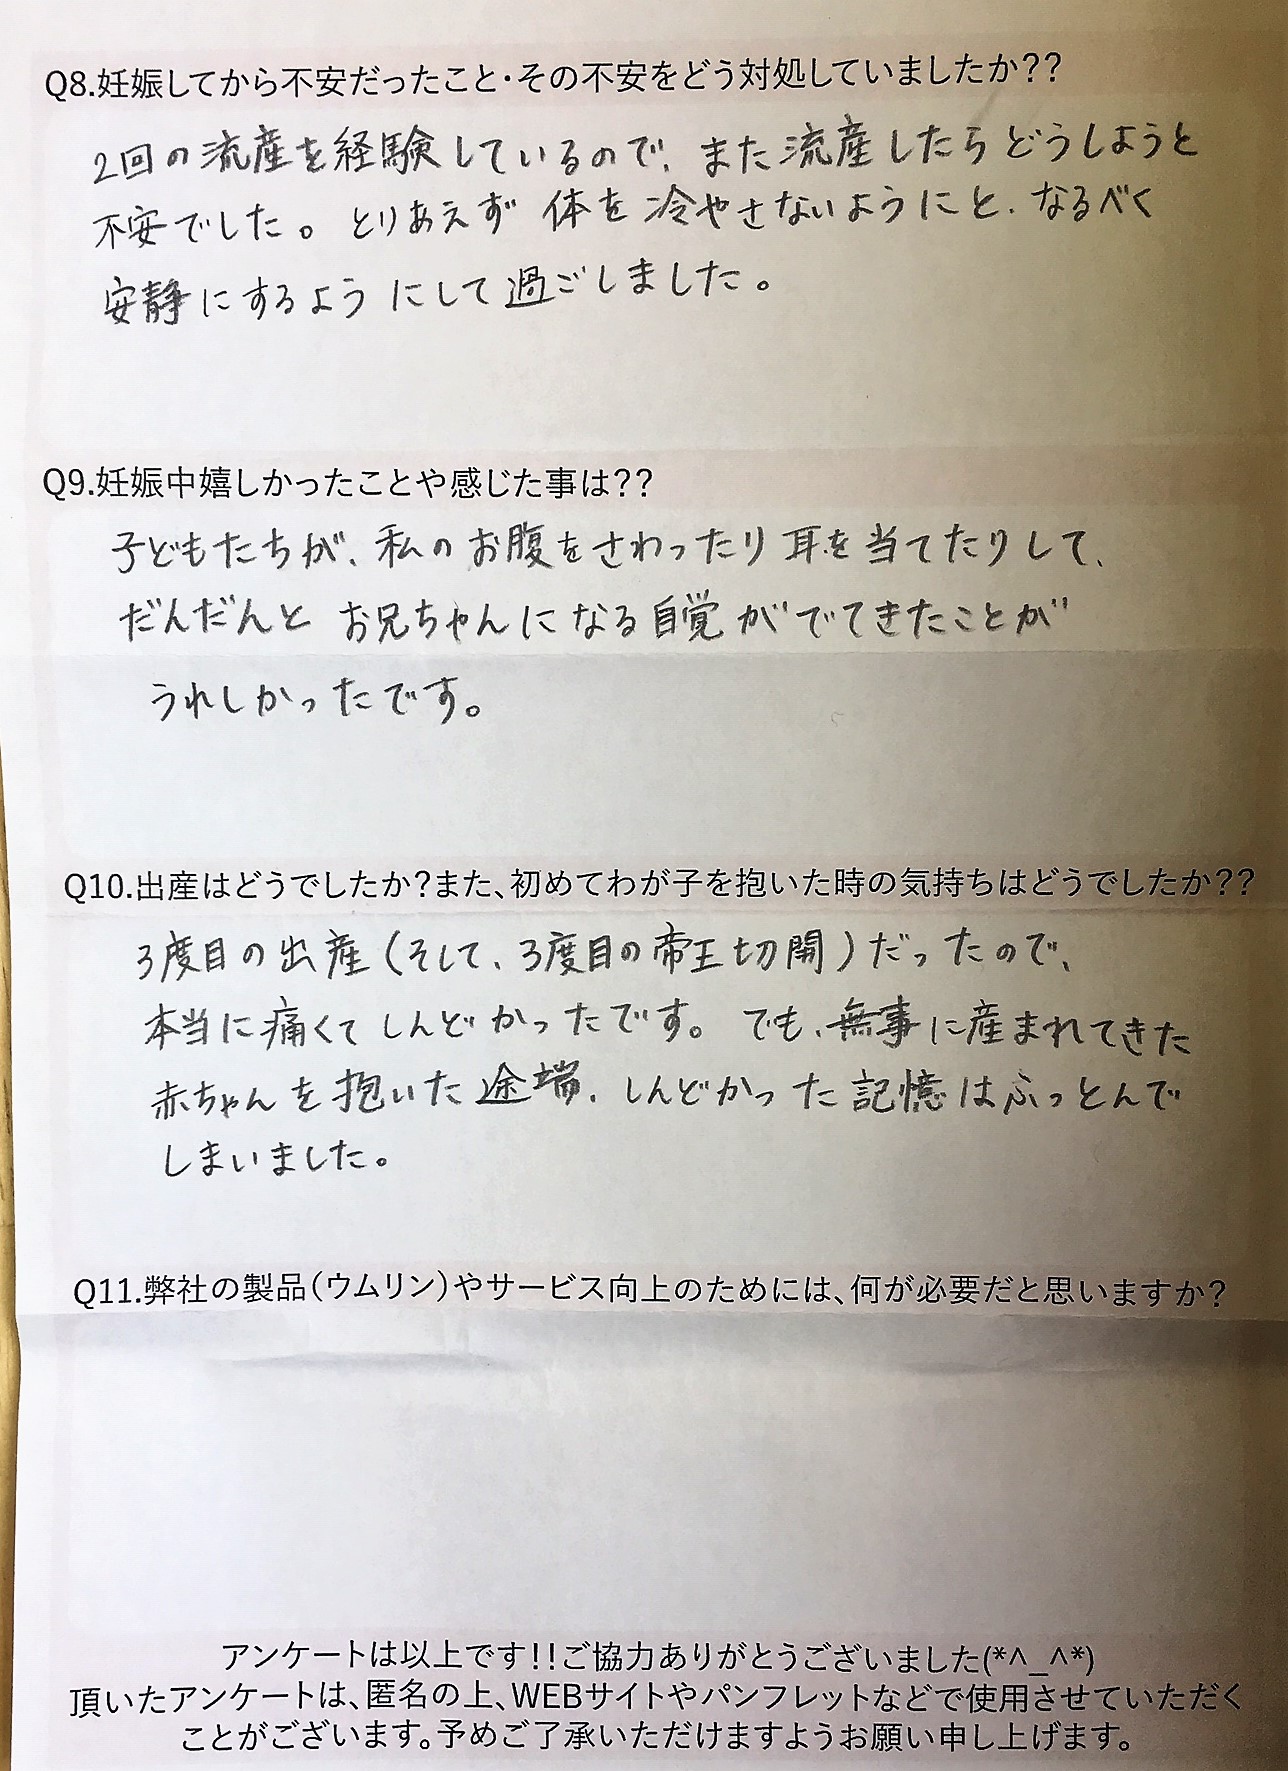 Q8.妊娠してから不安だったこと・その不安をどう対処していましたか??
2回の流産を経験しているので、また流産したらどうしようと
不安でした。とりあえず 体を冷やさないようにと、なるべく
安静にするようにして過ごしました。
Q9.妊娠中嬉しかったことや感じた事は??
子どもたちが、私のお腹をさわったり耳を当てたりして、
だんだんと お兄ちゃんになる自覚がでてきたことが
うれしかったです。
Q10.出産はどうでしたか?また、初めてわが子を抱いた時の気持ちはどうでしたか??
3度目の出産(そして、3度目の帝王切開)だったので、
本当に痛くてしんどかったです。でも、無事に産まれてきた
赤ちゃんを抱いた途端、しんどかった記憶はふっとんで
しまいました。
Q11.弊社の製品(ウムリン)やサービス向上のためには、何が必要だと思いますか?
アンケートは以上です!!ご協力ありがとうございました(*^_^*)
頂いたアンケートは、匿名の上、WEBサイトやパンフレットなどで使用させていただく
ことがございます。予めご了承いただけますようお願い申し上げます。